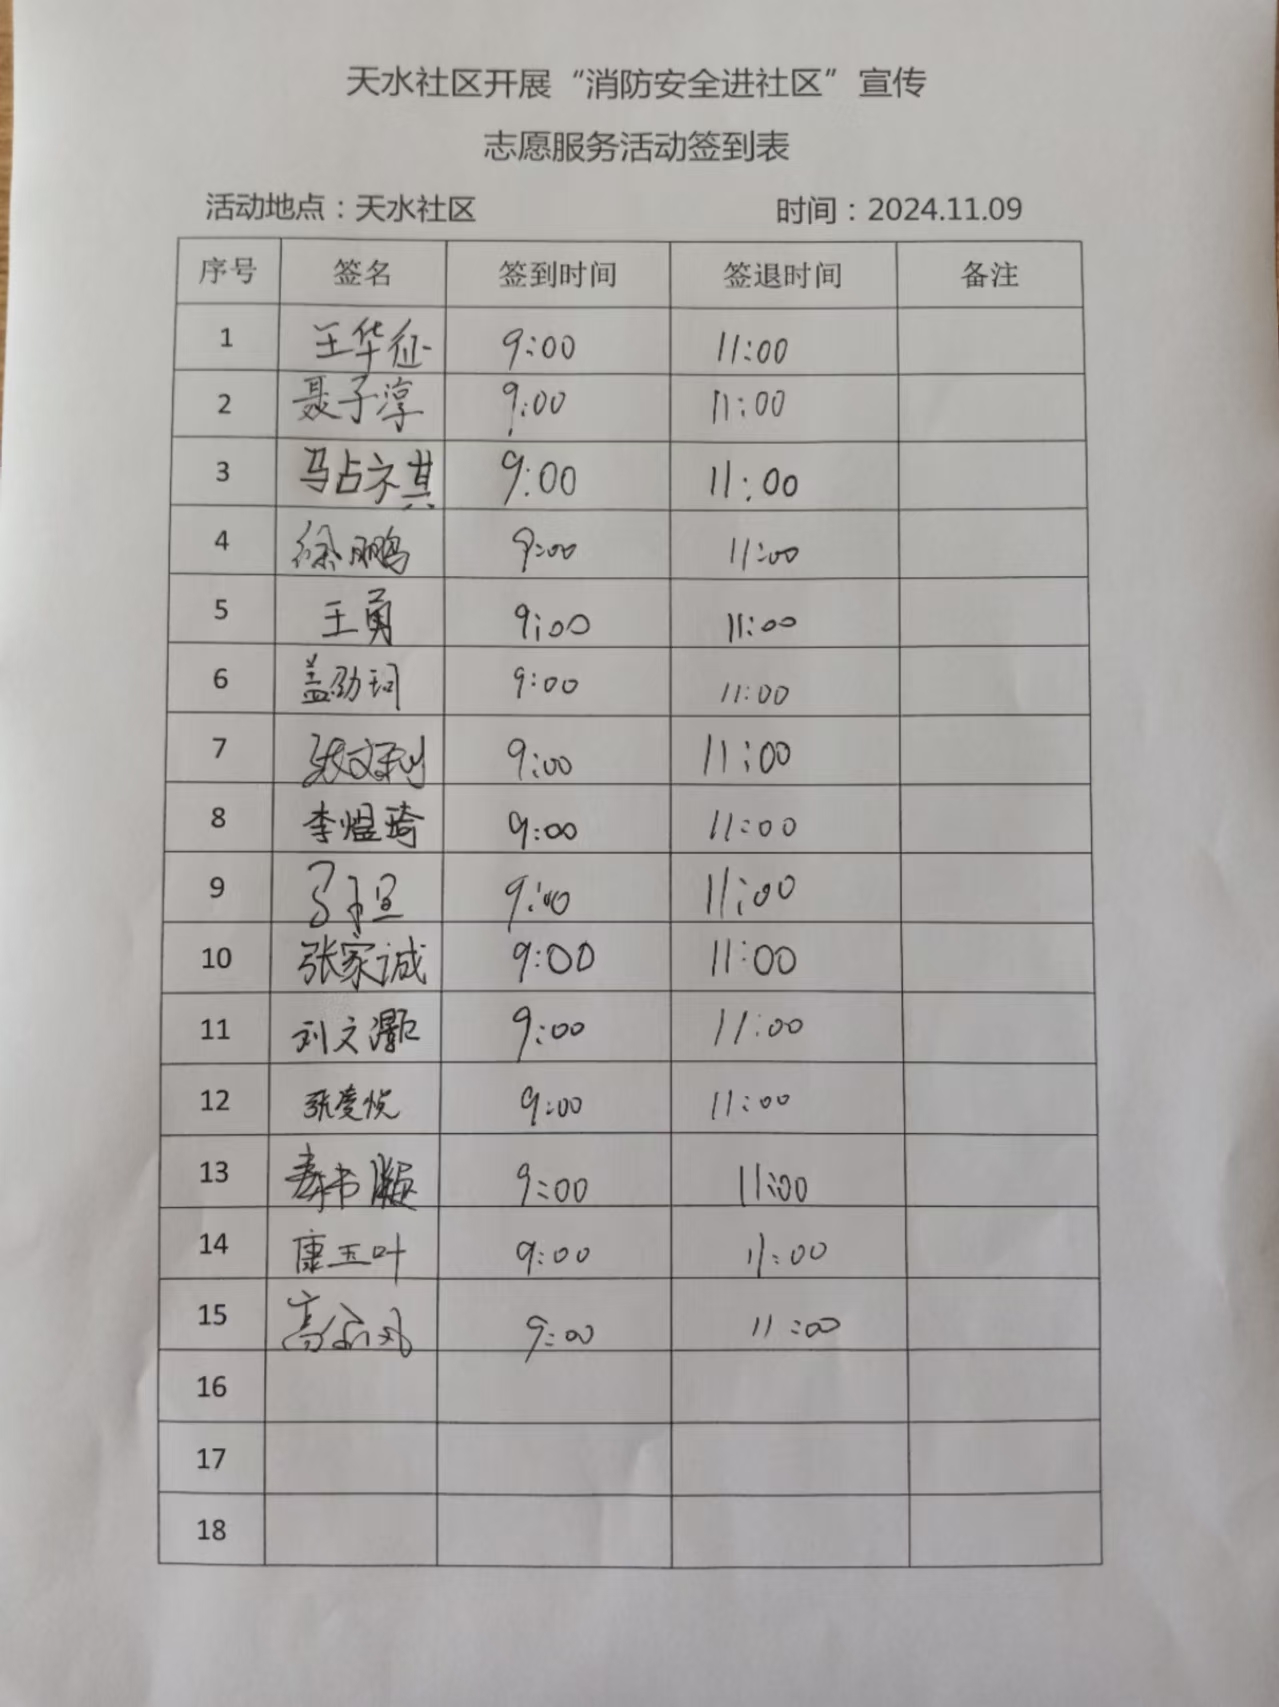 天水社区开展“消防安全进社区”宣传
志愿服务活动签到表
活动地点：天水社区 时间：2024.11.09
序号 签名 签到时间 签退时间 备注
1 王华征 9:00 11:00
2 聂子淳 9:00 11:00
3 马占祺 9:00 11:00
4 徐鹏 9:00 11:00
5 王勇 9:00 11:00
6 盖勋珂 9:00 11:00
7 张文利 9:00 11:00
8 李煜琦 9:00 11:00
9 9:00 11:00
10 张家诚 9:00 11:00
11 刘文灏 9:00 11:00
12 张雯悦 9:00 11:00
13 9:00 11:00
14 康玉叶 9:00 11:00
15 9:00 11:00
16
17
18